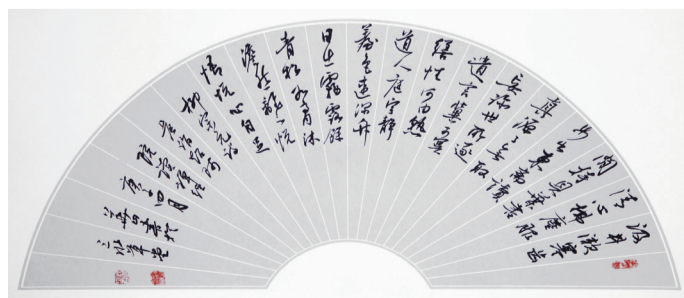 汲井漱寒齿
清心拂塵服
閒持貝葉書
步出東齋讀
真源了無取
妄跡世所逐
遺言冀可冥
繕性何由熟
道人庭宇靜
苔色連深竹
日出霧露餘
青松如膏沐
澹然離言說
悟悦心自足
柳宗元詩
晨詣超師
院讀禅經
四月